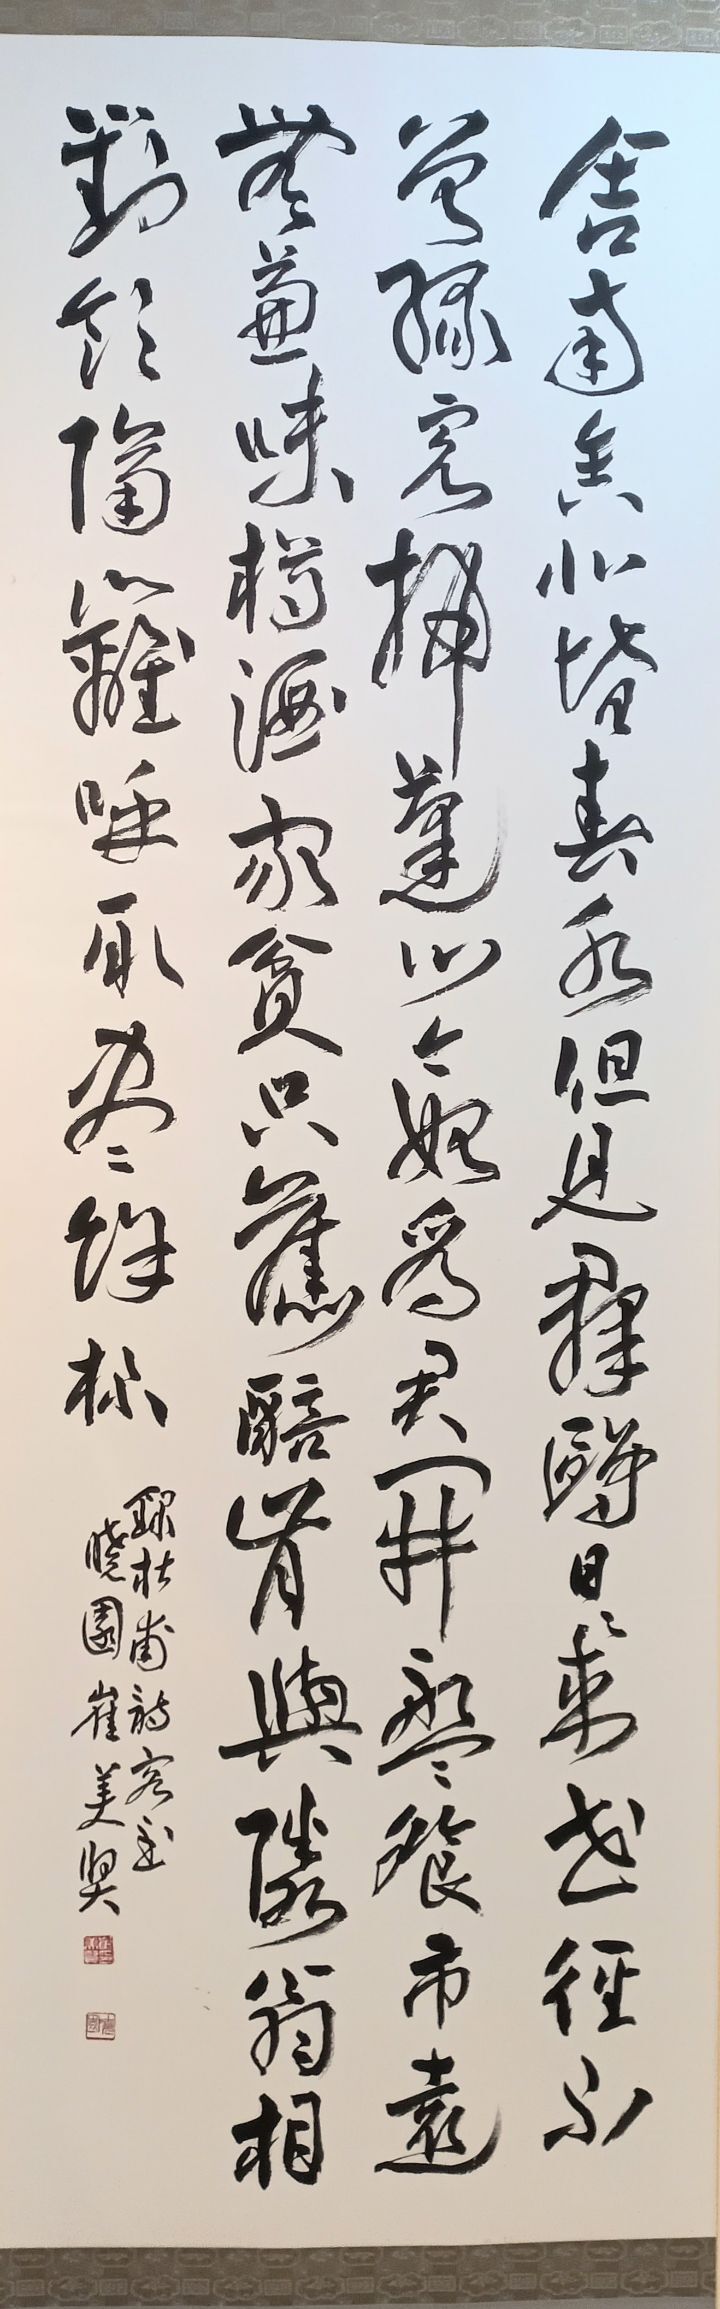 舍南舍北皆春水但見群鷗日日來花徑不
曾緣客掃蓬門今始爲君開盤飧市遠
無兼味樽酒家貧只舊醅肯與隣翁相
對飲隔籬呼取盡餘杯
錄杜甫詩客至
曉園崔美